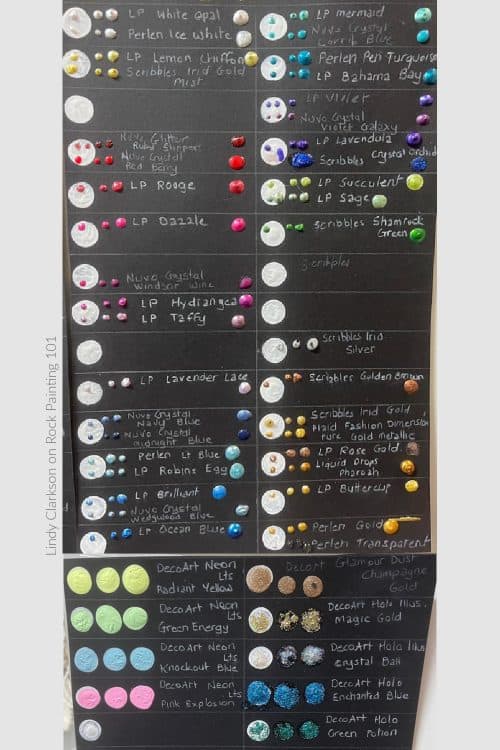 LP White Opal
Perlen Ice White
LP Lemon Chiffon
Scribbles Irid Gold
Mist
Nuvo Glitter
Ruby Slippers
Nuvo Crystal
Red Berry
LP Rouge
LP Dazzle
Nuvo Crystal
Windsor Wine
LP Hydrangea
LP Taffy
LP Lavender Lace
Nuvo Crystal
Navy Blue
Nuvo Crystal
Midnight Blue
Perlen Lt Blue
LP Robins Egg
LP Brilliant
Nuvo Crystal
Wedgwood Blue
LP Ocean Blue
LP mermaid
Nuvo Crystal
Blue
Perlen Perl Turquoise
LP Bahama Bay
LP Violet
Nuvo Crystal
Violet Galaxy
LP Lavendula
Scribbles Crystal Orchid
LP Succulent
LP Sage
Scribbles Shamrock
Green
Scribbles
Scribbles Irid
Silver
Scribbles Golden Brown
Scribbles Irid Gold
Plaid Fashion Dimension
Pure Gold Metallic
LP Rose Gold
Liquid Drops
Pharoah
LP Buttercup
Perlen Gold
Perlen Transparent
DecoArt Neon
Lts
Radiant Yellow
DecoArt Neon
Lts
Green Energy
DecoArt Neon
Lts
Knockout Blue
DecoArt Neon
Lts
Pink Explosion
DecoArt Glamour Dust
Champagne
Gold
DecoArt Holo Illus.
Magic Gold
DecoArt Holo Illus
Crystal Ball
DecoArt Holo
Enchanted Blue
DecoArt Holo
Green Potion
Lindy Clarkson on Rock Painting 101